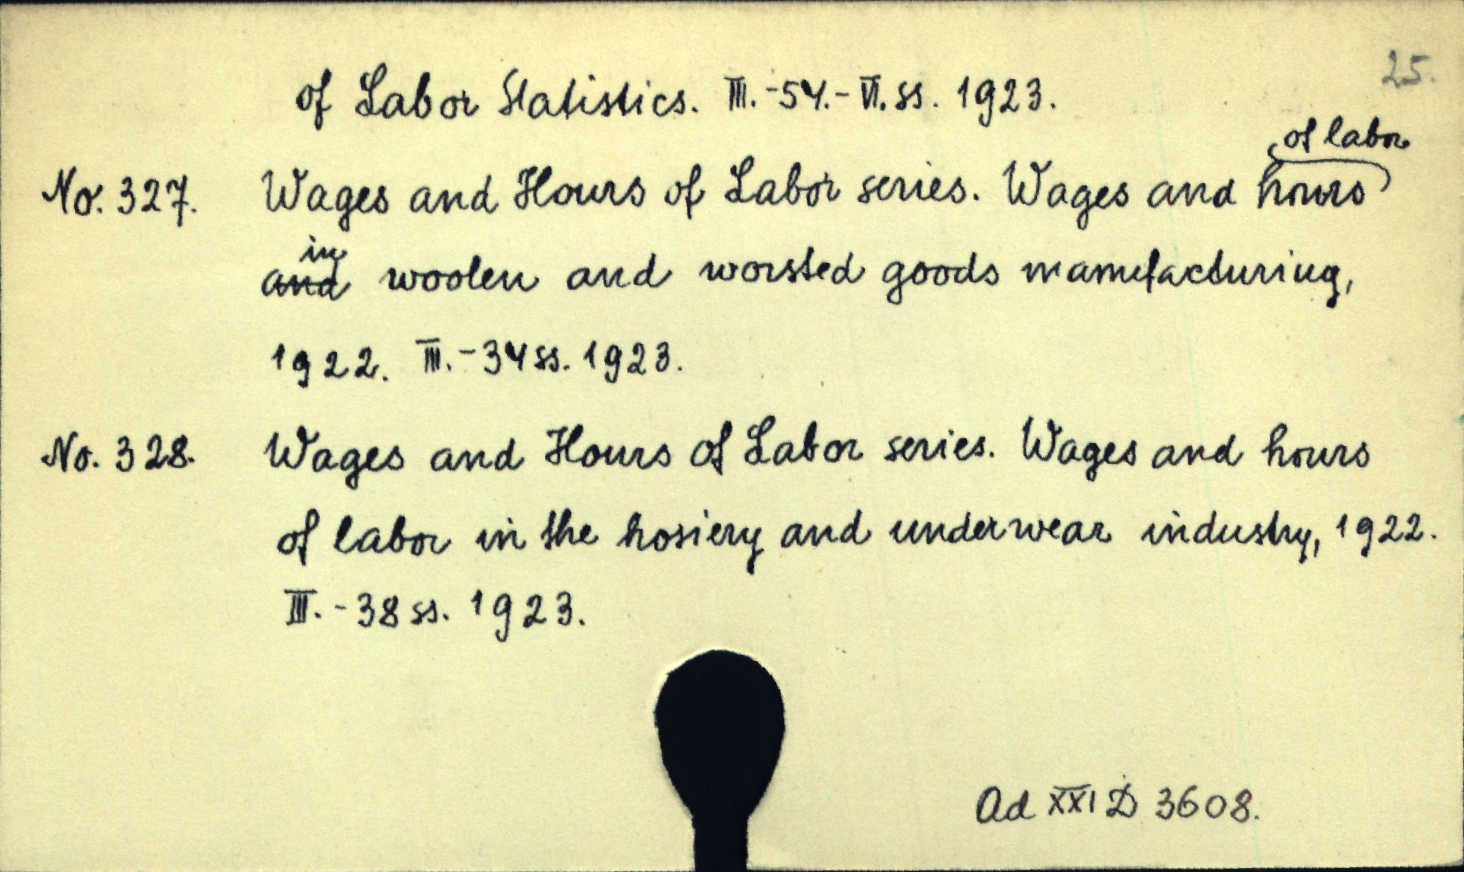 25.
of Labor Statistics. III.-54.-VI.ss. 1923.
of labor
No. 327. Wages and Hours of Labor series. Wages and hours
in
and woolen and worsted goods manufacturing,
1922. III.-34ss. 1923.
No. 328. Wages and Hours of Labor series. Wages and hours
of labor in the hosiery and underwear industry, 1922.
III.-38ss. 1923.
Ad XXI D 3608.